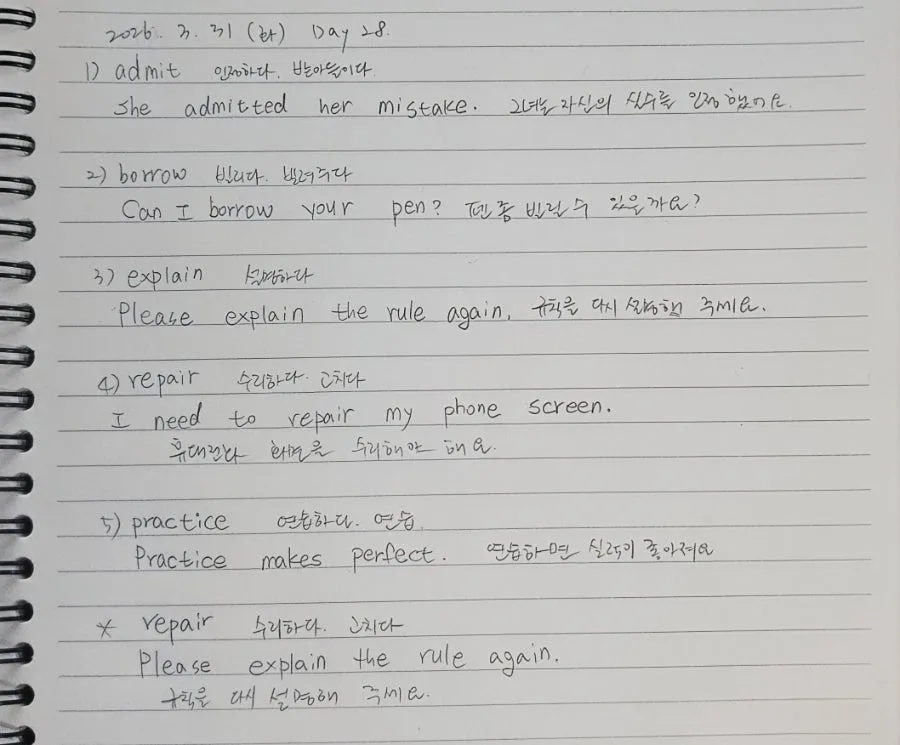 2026. 3. 31 (화) Day 28.
1) admit 인정하다. 받아들이다.
She admitted her mistake. 그녀는 자신의 실수를 인정했어요.
2) borrow 빌리다. 빌려주다
Can I borrow your pen? 펜 좀 빌릴 수 있을까요?
3) explain 설명하다
Please explain the rule again. 규칙을 다시 설명해 주세요.
4) repair 수리하다. 고치다
I need to repair my phone screen.
화면을 수리해야 해요.
5) practice 연습하다. 연습
Practice makes perfect. 연습하면 실력이 좋아져요
* repair 수리하다. 고치다
Please explain the rule again.
규칙을 다시 설명해 주세요.